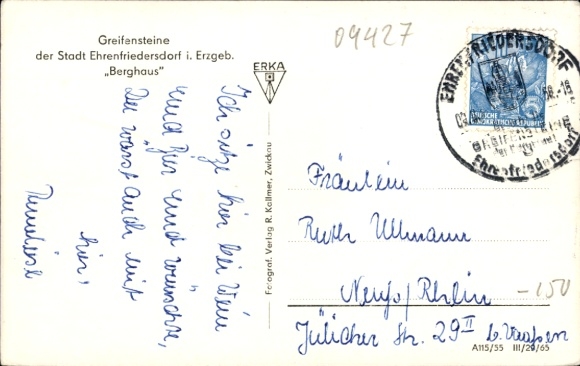 09427
Greifensteine
der Stadt Ehrenfriedersdorf i. Erzgeb.
„Berghaus”
ERKA
Ich sitze hier bei Wein
und Bier und wünschte,
Du wärst auch mit
hier,
Fotograf. Verlag R. Kallmer, Zwickau
EHRENFRIEDERSDORF
GREIFENSTEINE
Ehrenfriedersdorf
DEUTSCHE
DEMOKRATISCHE REPUBLIK
5
Fräulein
Ruth Ullmann
Neuss/Rhein
Jülicher Str. 29 II
-150
A115/55 III/29/65